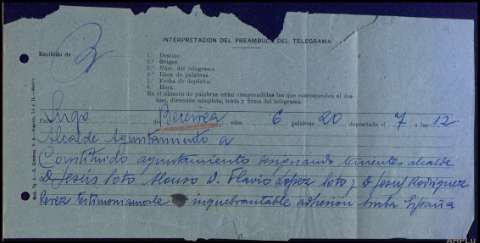 INTERPRETACIÓN DEL PREÁMBULO DEL TELEGRAMA
Recibido de
1.º Destino
2.º Origen
3.º Núm. del telegrama
4.º Clase de palabras
5.º Fecha de depósito
6.º Hora
En el número de palabras están comprendidas las que corresponden al destino, dirección completa, texto y firma del telegrama.
Lugo de Becerreá núm. 6 palabras 20 depositado el 7 a las 12
Alcalde Ayuntamiento a
Constituido ayuntamiento designando tenientes alcalde
D Jesús Soto Alonso D. Flavio López Soto, D José Rodríguez
Pérez testimoniamosle inquebrantable adhesión Santa España
ARPLU